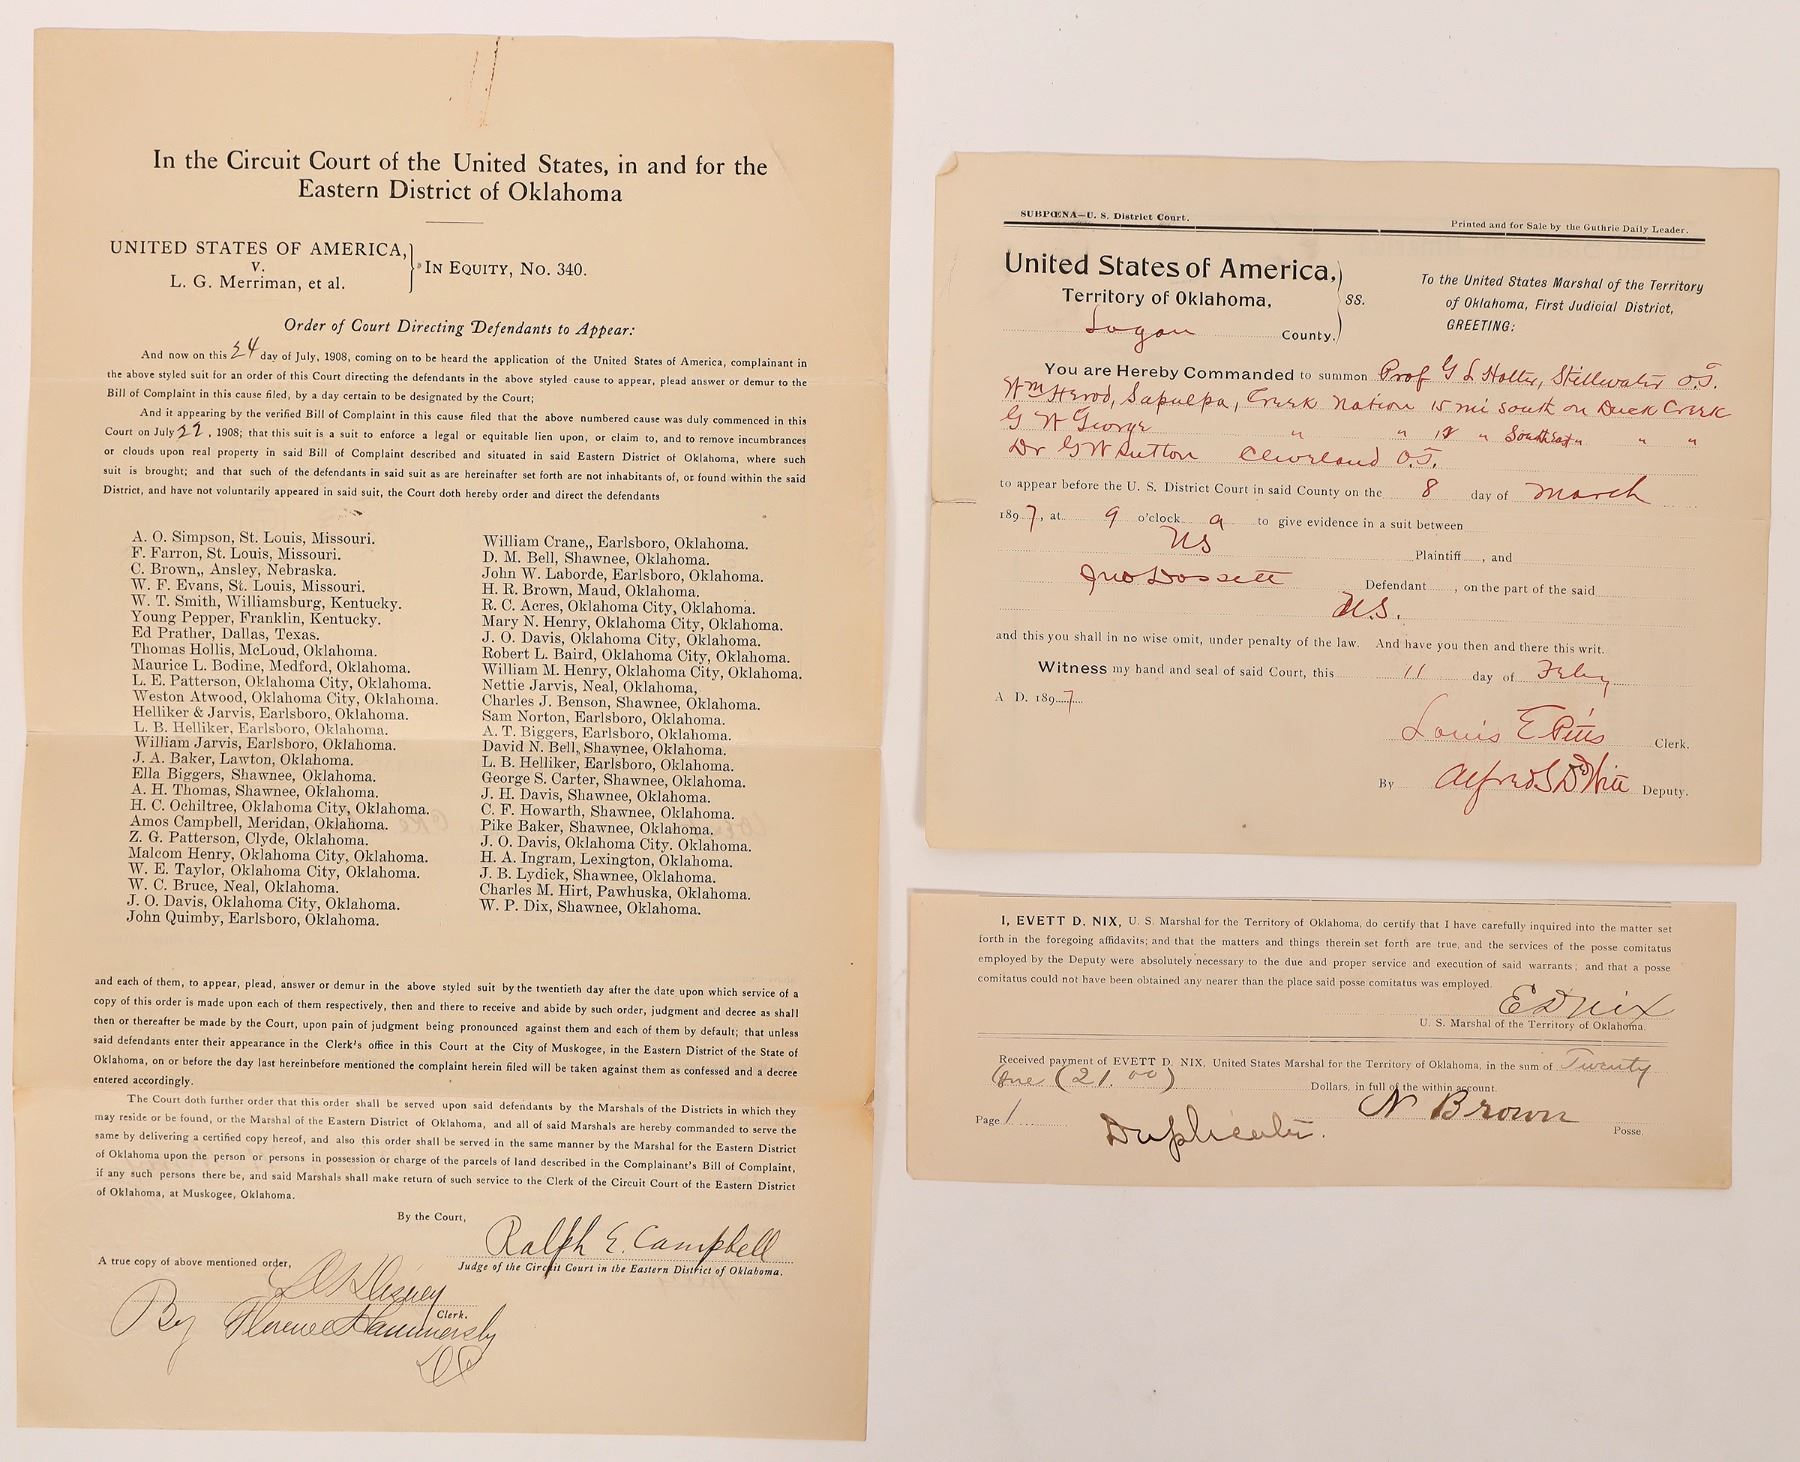 In the Circuit Court of the United States, in and for the
Eastern District of Oklahoma
UNITED STATES OF AMERICA,
v.
L. G. Merriman, et al.
IN EQUITY, NO. 340.
Order of Court Directing Defendants to Appear:
And now on this 24 day of July, 1908, coming on to be heard the application of the United States of America, complainant in
the above styled suit for an order of this Court directing the defendants in the above styled cause to appear, plead answer or demur to the
Bill of Complaint in this cause filed, by a day certain to be designated by the Court;
And it appearing by the verified Bill of Complaint in this cause filed that the above numbered cause was duly commenced in this
Court on July 22, 1908; that this suit is a suit to enforce a legal or equitable lien upon, or claim to, and to remove incumbrances
or clouds upon real property in said Bill of Complaint described and situated in said Eastern District of Oklahoma, where such
suit is brought; and that such of the defendants in said suit as are hereinafter set forth are not inhabitants of, or found within the said
District, and have not voluntarily appeared in said suit, the Court doth hereby order and direct the defendants
A. O. Simpson, St. Louis, Missouri.
F. Farron, St. Louis, Missouri.
C. Brown,, Ansley, Nebraska.
W. F. Evans, St. Louis, Missouri.
W. T. Smith, Williamsburg, Kentucky.
Young Pepper, Franklin, Kentucky.
Ed Prather, Dallas, Texas.
Thomas Hollis, McLoud, Oklahoma.
Maurice L. Bodine, Medford, Oklahoma.
L. E. Patterson, Oklahoma City, Oklahoma.
Weston Atwood, Oklahoma City, Oklahoma.
Helliker & Jarvis, Earlsboro, Oklahoma.
L. B. Helliker, Earlsboro, Oklahoma.
William Jarvis, Earlsboro, Oklahoma.
J. A. Baker, Lawton, Oklahoma.
Ella Biggers, Shawnee, Oklahoma.
A. H. Thomas, Shawnee, Oklahoma.
H. C. Ochiltree, Oklahoma City, Oklahoma.
Amos Campbell, Meridan, Oklahoma.
Z. G. Patterson, Clyde, Oklahoma.
Malcom Henry, Oklahoma City, Oklahoma.
W. E. Taylor, Oklahoma City, Oklahoma.
W. C. Bruce, Neal, Oklahoma.
J. O. Davis, Oklahoma City, Oklahoma.
John Quimby, Earlsboro, Oklahoma.
William Crane,, Earlsboro, Oklahoma.
D. M. Bell, Shawnee, Oklahoma.
John W. Laborde, Earlsboro, Oklahoma.
H. R. Brown, Maud, Oklahoma.
R. C. Acres, Oklahoma City, Oklahoma.
Mary N. Henry, Oklahoma City, Oklahoma.
J. O. Davis, Oklahoma City, Oklahoma.
Robert L. Baird, Oklahoma City, Oklahoma.
William M. Henry, Oklahoma City, Oklahoma.
Nettie Jarvis, Neal, Oklahoma,
Charles J. Benson, Shawnee, Oklahoma.
Sam Norton, Earlsboro, Oklahoma.
A. T. Biggers, Earlsboro, Oklahoma.
David N. Bell, Shawnee, Oklahoma.
L. B. Helliker, Earlsboro, Oklahoma.
George S. Carter, Shawnee, Oklahoma.
J. H. Davis, Shawnee, Oklahoma.
C. F. Howarth, Shawnee, Oklahoma.
Pike Baker, Shawnee, Oklahoma.
J. O. Davis, Oklahoma City. Oklahoma.
H. A. Ingram, Lexington, Oklahoma.
J. B. Lydick, Shawnee, Oklahoma.
Charles M. Hirt, Pawhuska, Oklahoma.
W. P. Dix, Shawnee, Oklahoma.
and each of them, to appear, plead, answer or demur in the above styled suit by the twentieth day after the date upon which service of a
copy of this order is made upon each of them respectively, then and there to receive and abide by such order, judgment and decree as shall
then or thereafter be made by the Court, upon pain of judgment being pronounced against them and each of them by default; that unless
said defendants enter their appearance in the Clerk's office in this Court at the City of Muskogee, in the Eastern District of the State of
Oklahoma, on or before the day last hereinbefore mentioned the complaint herein filed will be taken against them as confessed and a decree
entered accordingly.
The Court doth further order that this order shall be served upon said defendants by the Marshals of the Districts in which they
may reside or be found, or the Marshal of the Eastern District of Oklahoma, and all of said Marshals are hereby commanded to serve the
same by delivering a certified copy hereof, and also this order shall be served in the same manner by the Marshal for the Eastern District
of Oklahoma upon the person or persons in possession or charge of the parcels of land described in the Complainant's Bill of Complaint,
if any such persons there be, and said Marshals shall make return of such service to the Clerk of the Circuit Court of the Eastern District
of Oklahoma, at Muskogee, Oklahoma.
By the Court,
Ralph E. Campbell
Judge of the Circuit Court in the Eastern District of Oklahoma.
A true copy of above mentioned order,
Clerk.
By Florence Hammersly
DC
SUBPŒNA—U. S. District Court.
Printed and for Sale by the Guthrie Daily Leader.
United States of America,
Territory of Oklahoma,
Logan County.
SS.
To the United States Marshal of the Territory
of Oklahoma, First Judicial District,
GREETING:
You are Hereby Commanded to summon Prof G L Holter, Stillwater O.T.
Wm Herod, Sapulpa, Creek Nation 15 mi south on Duck Creek
G W George " " 18 " Southeast " " "
Dr G W Sutton Cleveland O.T.
to appear before the U. S. District Court in said County on the 8 day of March
1897, at 9 o'clock a to give evidence in a suit between
US Plaintiff, and
Jno Dossett Defendant, on the part of the said
U.S.
and this you shall in no wise omit, under penalty of the law. And have you then and there this writ.
Witness my hand and seal of said Court, this 11 day of Feby
A D. 1897
Louis E Pitts Clerk.
By Alfred S DeWitt Deputy.
I, EVETT D. NIX, U. S. Marshal for the Territory of Oklahoma, do certify that I have carefully inquired into the matter set
forth in the foregoing affidavits; and that the matters and things therein set forth are true, and the services of the posse comitatus
employed by the Deputy were absolutely necessary to the due and proper service and execution of said warrants; and that a posse
comitatus could not have been obtained any nearer than the place said posse comitatus was employed.
E D Nix
U. S. Marshal of the Territory of Oklahoma.
Received payment of EVETT D. NIX, United States Marshal for the Territory of Oklahoma, in the sum of Twenty
One (21.00) Dollars, in full of the within account.
N Brown
Page 1
Posse.
Duplicate.